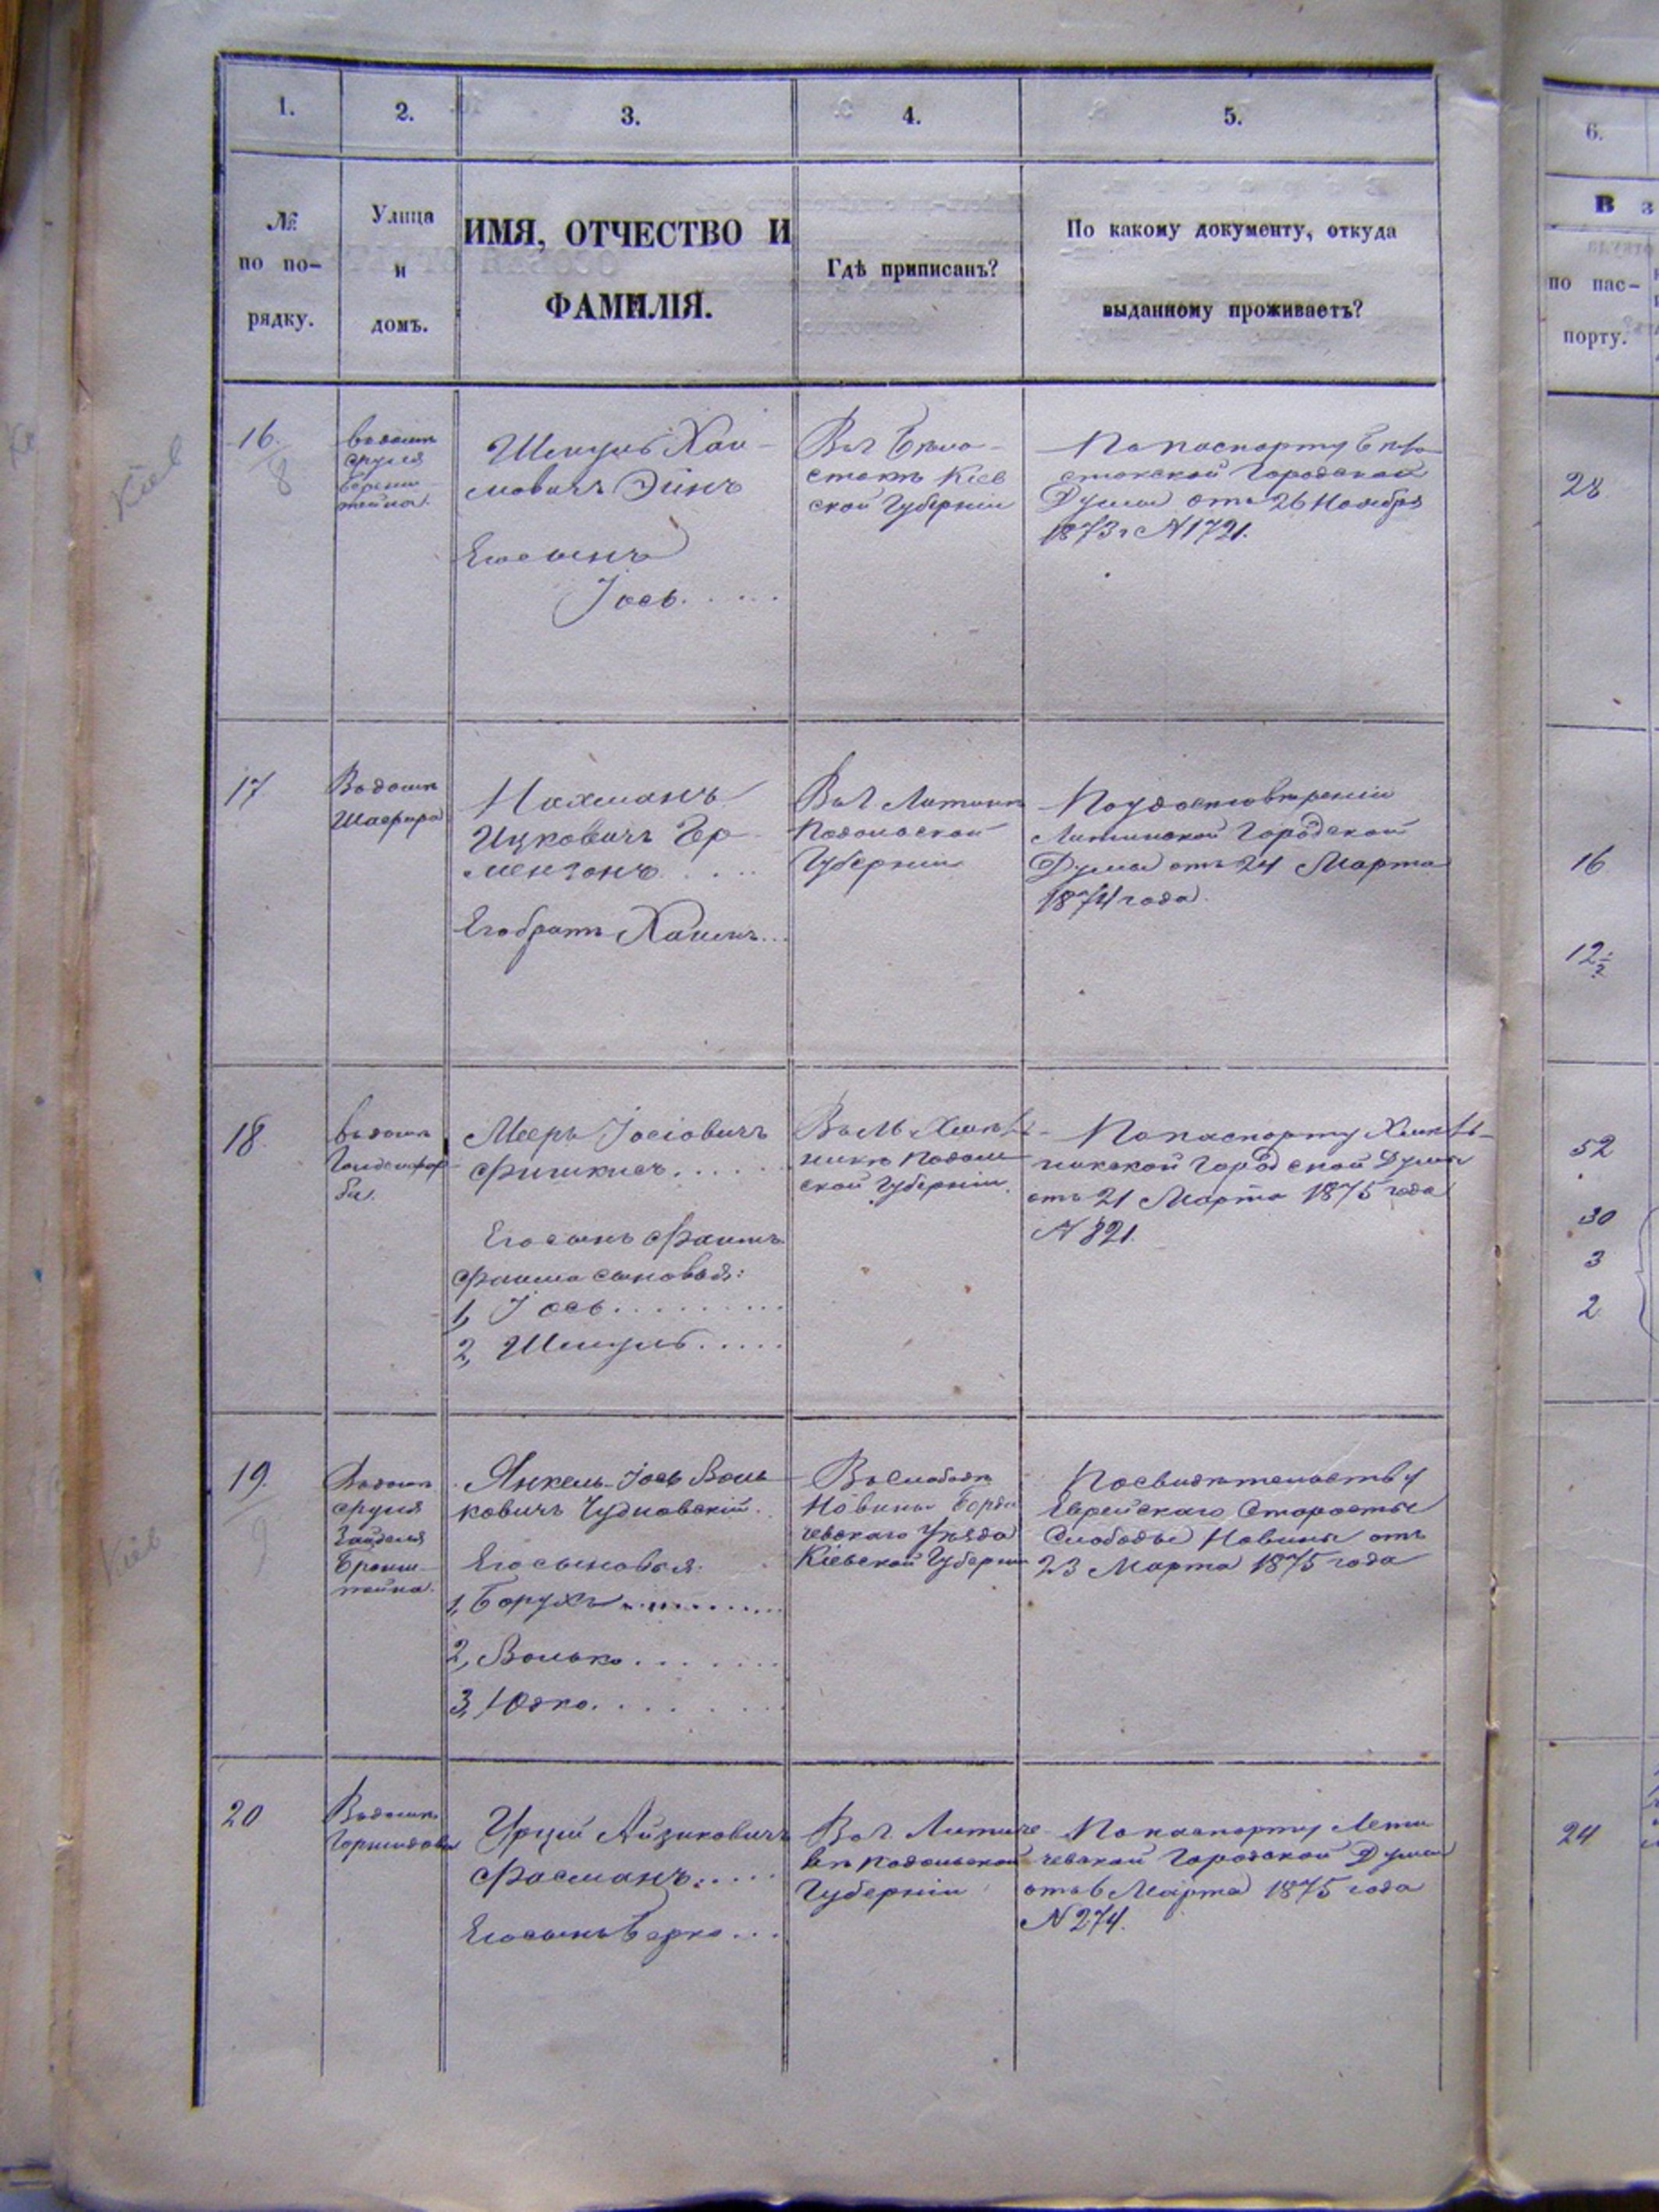 1.
2.
3.
4.
5.
6.
№
по по-
рядку.
Улица
и
домъ.
ИМЯ, ОТЧЕСТВО И
ФАМИЛІЯ.
Гдѣ приписанъ?
По какому документу, откуда
выданному проживаетъ?
В з
по пас-
порту.
Кіев
16.
8
Въ домѣ
Сруля
Шмуль Хаи-
мовичъ Эйнъ
Его сынъ
Іось.....
Въ г. Бѣло-
стокѣ Кіев
ской Губерніи
По паспорту Бѣло
стокской Городской
Думы отъ 26 Ноября
1873 г. N 1721.
28
17
Въ домѣ
Шафира
Нахманъ
Ицковичъ Гер-
менгонъ.....
Его братъ Хаимъ...
Въ г. Литинѣ
Подольской
Губерніи
По удостовѣренію
Литинской Городской
Думы отъ 24 Марта
1874 года.
16
12½
18.
Въ домѣ
Гольденфар-
ба.
Мееръ Іосіовичъ
Фишкисъ......
Его сынъ Фаимъ
Фаима сыновья:
1, Іось.........
2, Шмуль.....
Въ м. Хмѣль-
никѣ Подоль
ской Губерніи.
По паспорту Хмѣль-
никской Городской Думы
отъ 21 Марта 1875 года
N 821.
52
30
3
2
Кіев
19.
9
Въ домѣ
Сруля
Зайделя
Бронш-
тейна.
Янкель-Іось Воль
ковичъ Чудновскій.
Его сыновья:
1, Борухъ...........
2, Волько.......
3, Юдко.......
Въ слободѣ
Новины Берди
чевскаго Уѣзда
Кіевской Губерніи
По свидѣтельству
Еврейскаго Старосты
Слободы Новины отъ
23 Марта 1875 года
20
Въ домѣ
Айзиковичъ
Фасманъ.....
Его сынъ Берко...
Въ г. Литиче
вѣ Подольской
Губерніи
По паспорту Лети
чевской Городской Думы
отъ 6 Марта 1875 года
N 274.
24